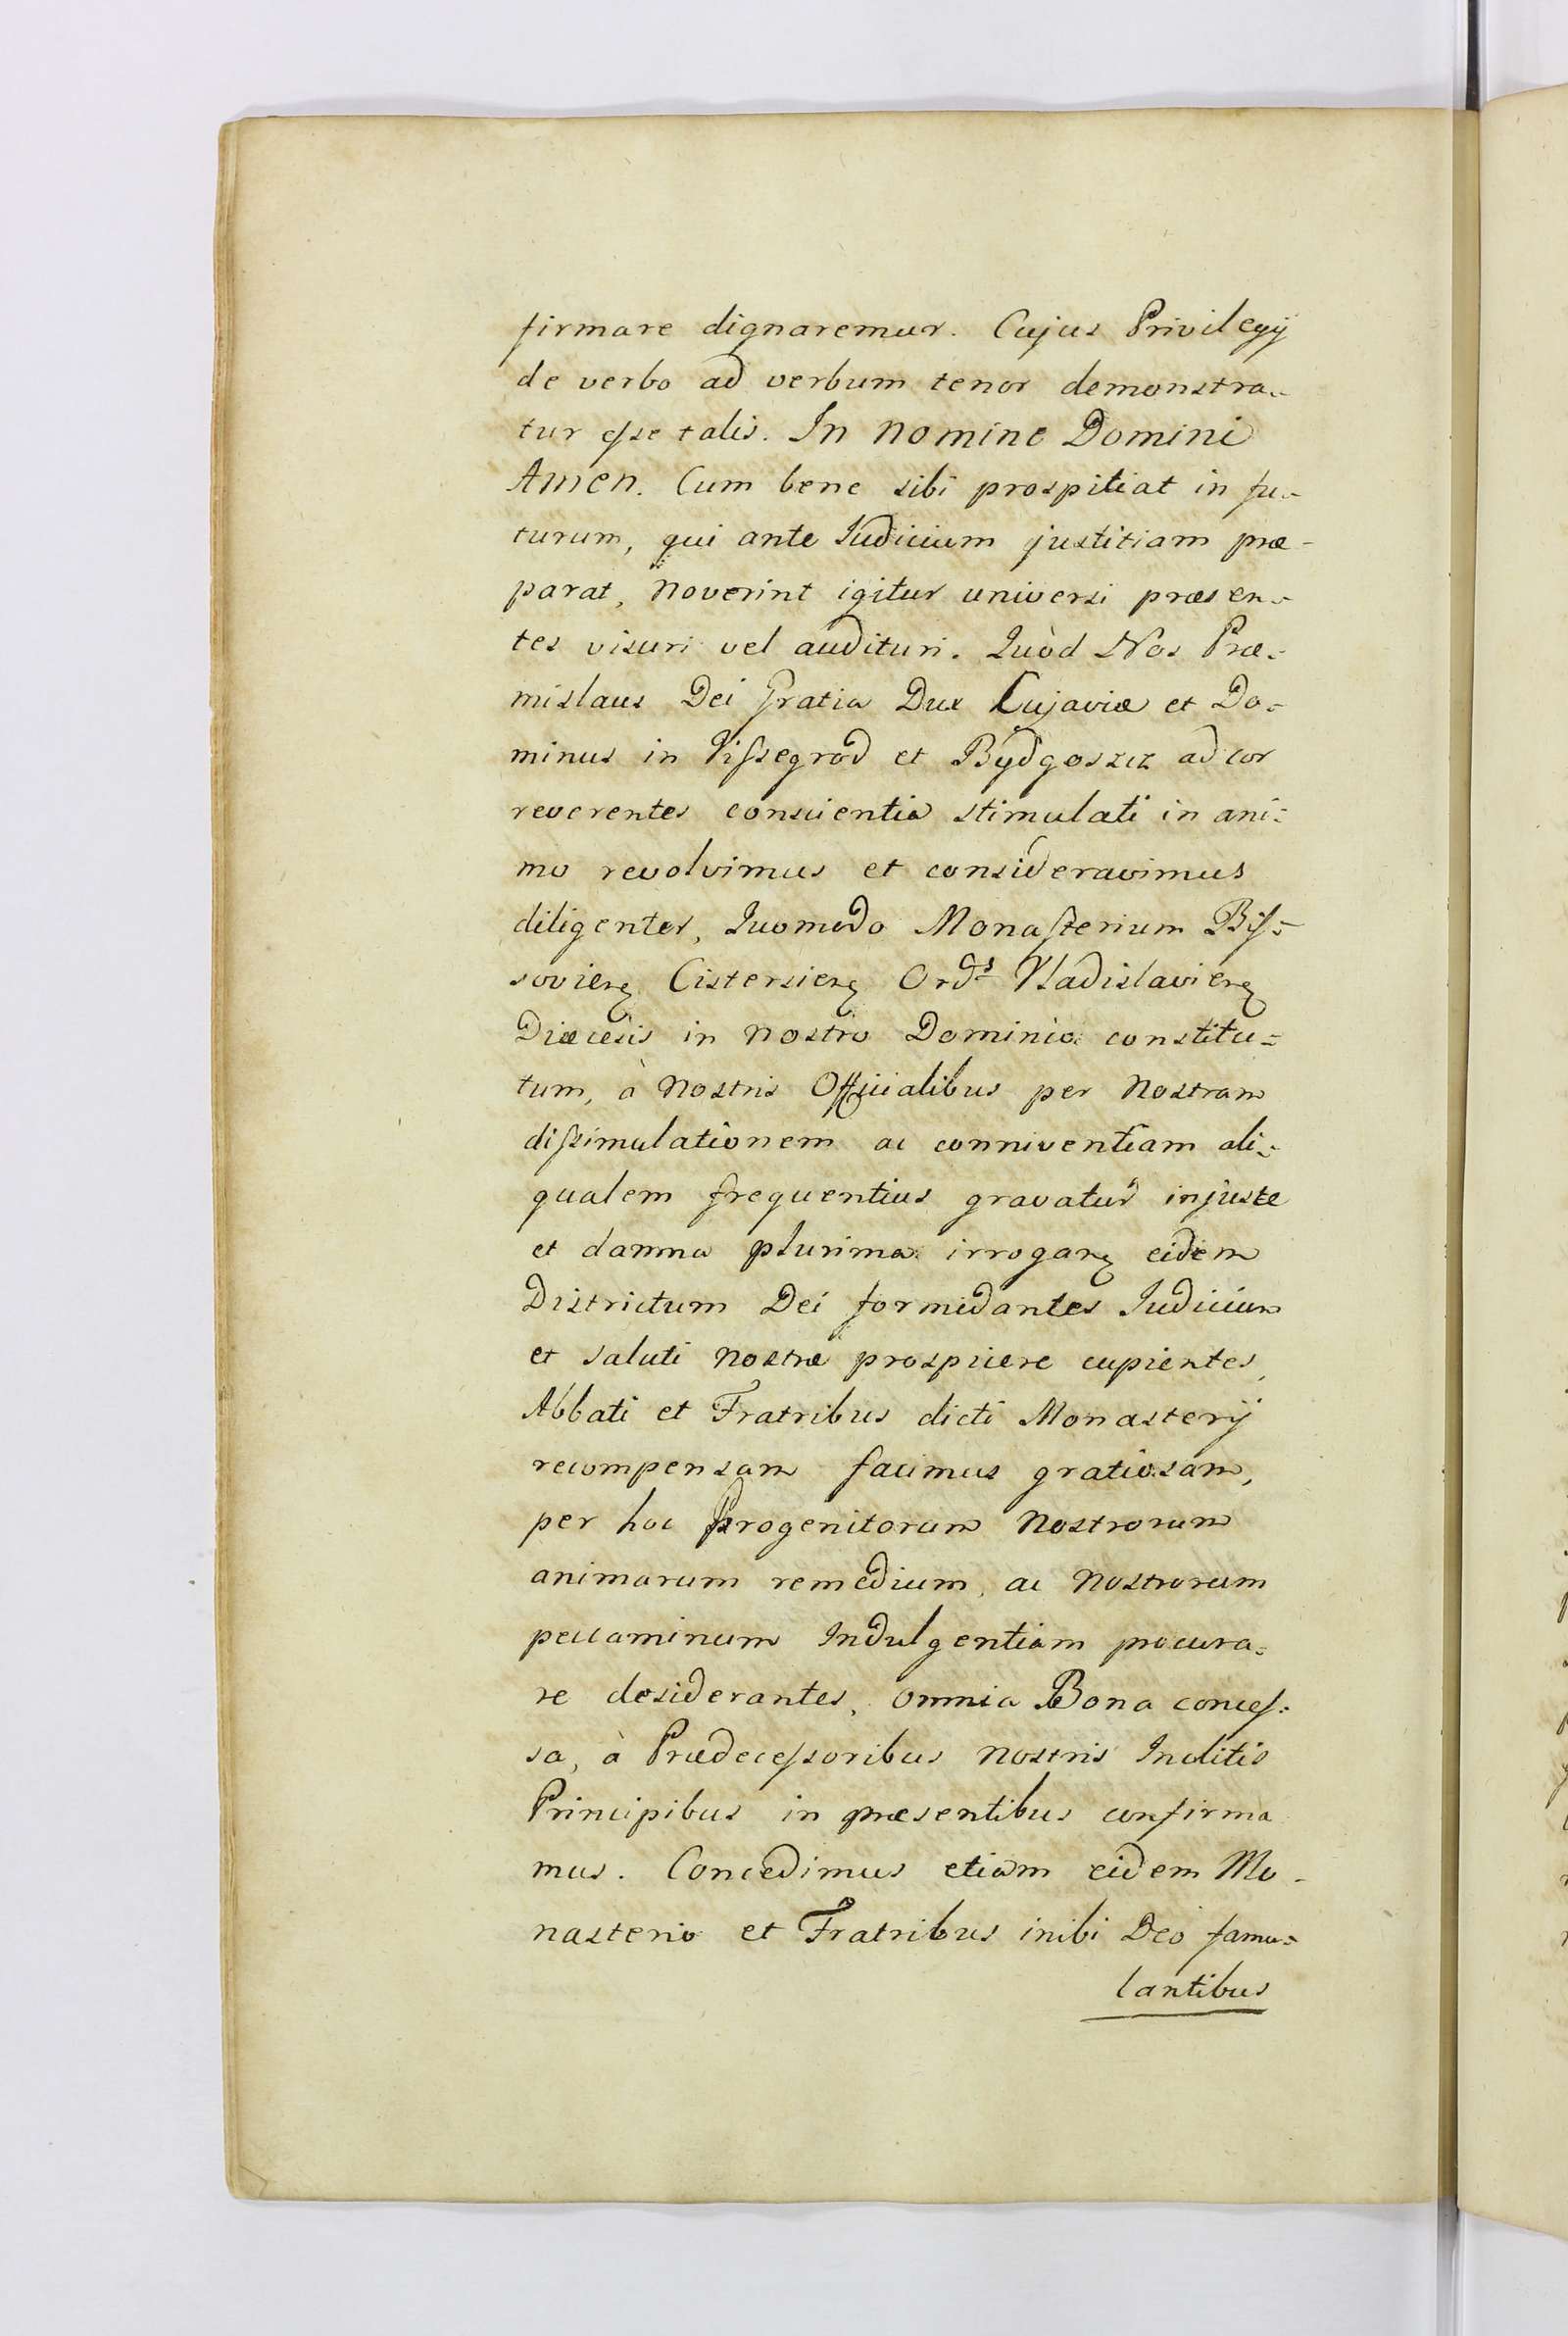 firmare dignaremur. Cujus Privilegÿ
de verbo ad verbum tenor demonstra=
tur eſse talis. In nomine Domini
Amen. Cum bene sibi prospitiat in fu=
turum, qui ante Iudicium justitiam præ-
parat, noverint igitur universi præsen=
tes visuri vel audituri. Quòd Nos Præ=
mislaus Dei Gratia Dux Cujaviæ et Do=
minus in Viſsegrod et Bydgoszcz ad cor
reverentes conscientia stimulati in ani=
mo revolvimus et consideravimus
diligenter, Quomodo Monaſterium Biſ=
sovienꝫ Cistersienꝫ Ordˢ Vladislavienꝫ
Diæcesis in nostro Dominio constitu=
tum, à nostris Officialibus per nostram
diſsimulationem ac conniventiam ali=
qualem frequentius gravatur injuste
et damna plurima irroganꝫ eidem
Districtum Dei formidantes Iudicium
et saluti nostræ prospicere cupientes,
Abbati et Fratribus dicti Monasterÿ
recompensam facimus gratiosam,
per hoc Progenitorum nostrorum
animarum remedium, ac nostrorum
peccaminum Indulgentiam procura=
re desiderantes, omnia Bona conceſ=
sa, à Prædeceſsoribus nostris Inclitis
Principibus in præsentibus confirma
mus. Concedimus etiam eidem Mo-
nasterio et Fratribus inibi Deo famu=
lantibus